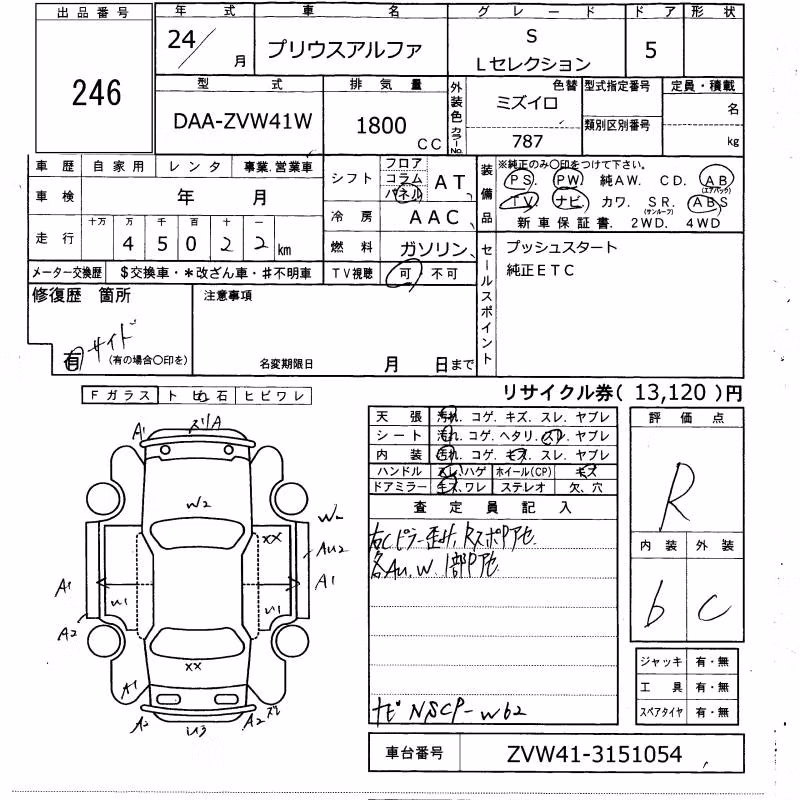 出品番号 年式 車名 グレード ドア 形状
246 24/ 月 プリウスアルファ S Lセレクション 5
型式 排気量 外装色 色替 型式指定番号 定員・積載
DAA-ZVW41W 1800 CC ミズイロ 名
カラーNo. 787 類別区別番号 kg
車歴 自家用 レンタ 事業.営業車 シフト フロア コラム パネル AT 装備品 ※純正のみ○印をつけて下さい。
PS. PW. 純AW. CD. AB (エアバック)
車検 年 月 TV. ナビ. カワ. SR. (サンルーフ) ABS
冷房 AAC 新車保証書. 2WD. 4WD
走行 十万 万 千 百 十 一
4 5 0 2 2 km 燃料 ガソリン セールスポイント プッシュスタート
純正ETC
メーター交換歴 $交換車・*改ざん車・#不明車 TV視聴 可 不可
修復歴 箇所 注意事項
サイド
有 (有の場合○印を) 名変期限日 月 日まで
Fガラス トビ石 ヒビワレ リサイクル券( 13,120 )円
天張 汚れ. コゲ. キズ. スレ. ヤブレ 評価点
シート 汚れ. コゲ. ヘタリ. スレ. ヤブレ
内装 汚れ. コゲ. キズ. スレ. ヤブレ
ハンドル スレ.ハゲ ホイール(CP) キズ
ドアミラー キズ.ワレ ステレオ 欠.穴
R
査定員記入
右Cピラー歪み, RスポPアセ.
各Au, W, 1部Pアセ
内装 外装
b C
ナビ NSCP-W62
ジャッキ 有・無
工具 有・無
スペアタイヤ 有・無
車台番号 ZVW41-3151054
A1 スリA
W2 W2
XX AU2
A1 A1
U1 U1
A2
XX
A1
A2 U3 A2 スリ